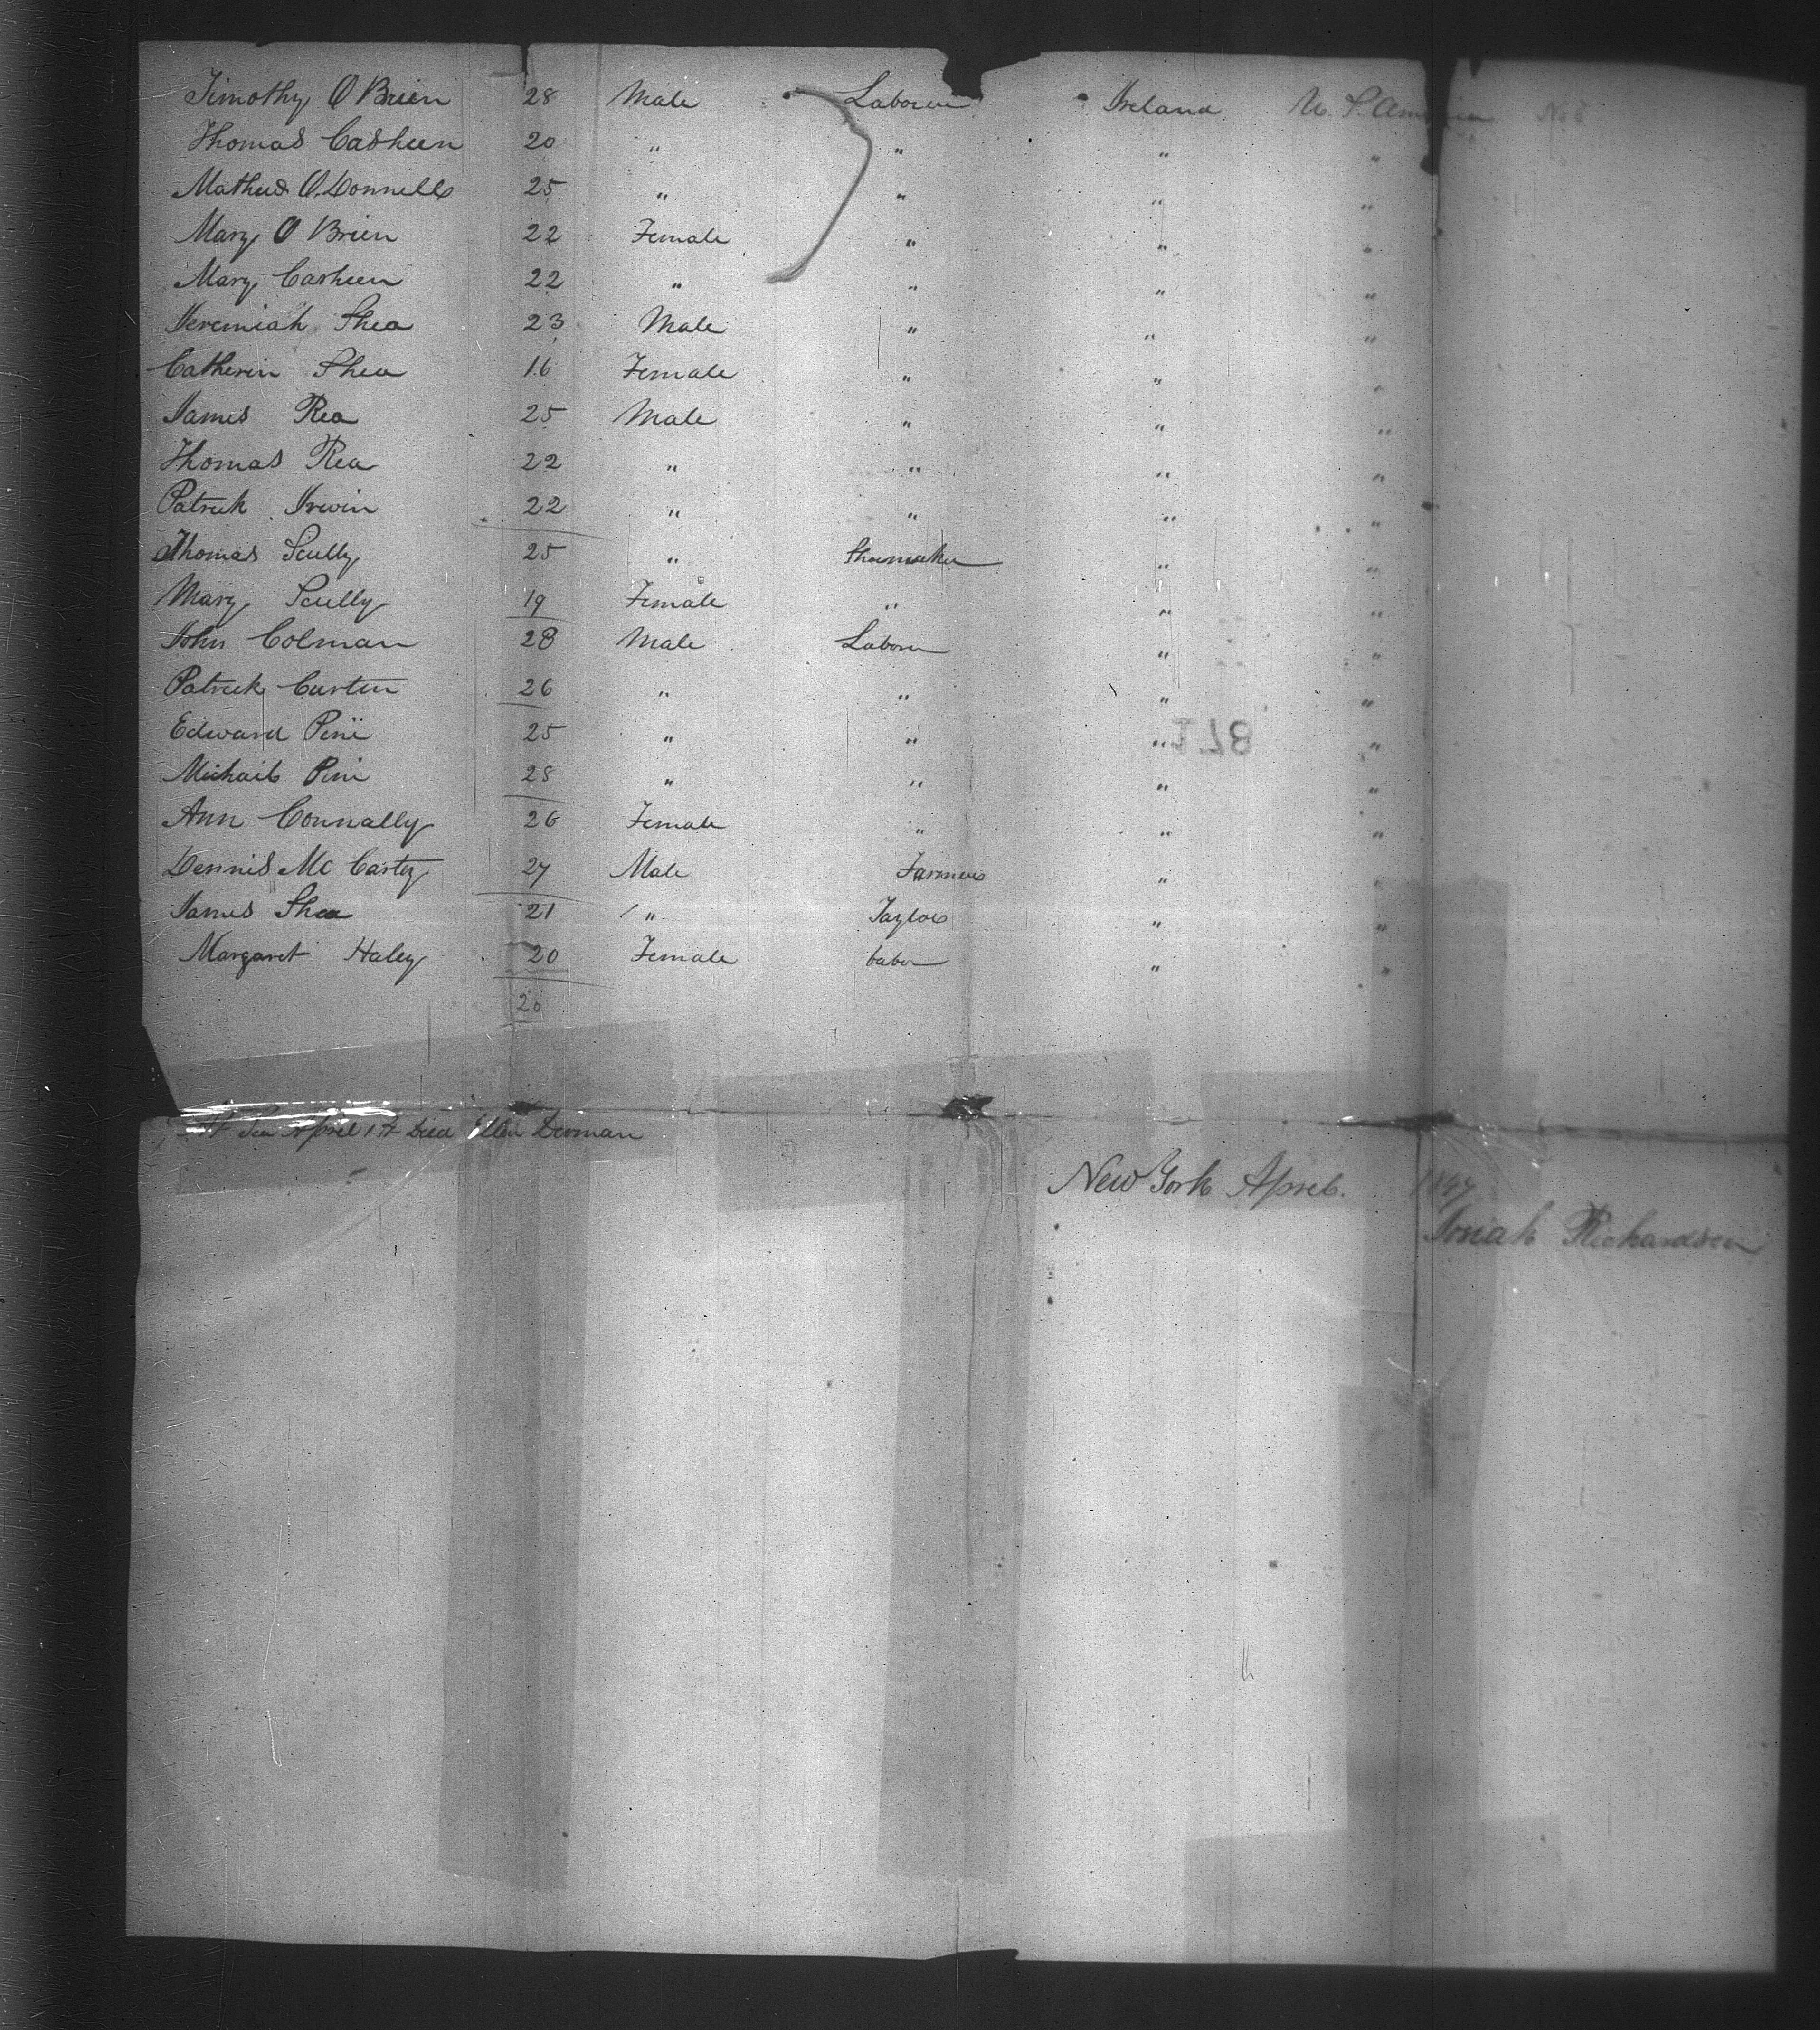 Timothy O Brien 28 Male Laborer Ireland U. S. America No 8
Thomas Casheen 20 " " " "
Mathew O.Donnell 25 " " " "
Mary O Brien 22 Female " " "
Mary Casheen 22 " " " "
Jeremiah Shea 23 Male " " "
Catherin Shea 16 Female " " "
James Rea 25 Male " " "
Thomas Rea 22 " " " "
Patrick Irwin 22 " " " "
Thomas Scully 25 " Shoemaker " "
Mary Scully 19 Female " " "
John Colman 28 Male Labor " "
Patrick Curtin 26 " " " "
Edward Pini 25 " " " "
178
Michail Pini 28 " " " "
Ann Connally 26 Female " " "
Dennis Mc Carty 27 Male Farmer " "
James Shea 21 " Taylor " "
Margaret Haley 20 Female Labor " "
20
At Sea April 1st Died Ellen Dorman
New York April. 1847
Josiah Richardson